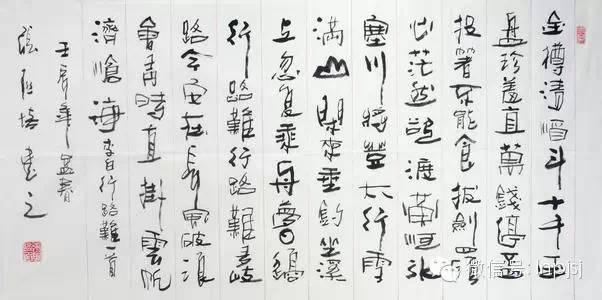 金樽清酒斗十千玉
盤珍羞直萬錢停盃
投箸不能食拔劍四顧
心茫然欲渡黃河冰
塞川將登太行雪
滿山閑來垂釣坐溪
上忽復乘舟夢日邊
行路難行路難多歧
路今安在長風破浪
會有時直掛雲帆
濟滄海 李白行路難一首
壬辰年孟春
書之
微信号: lspjsj